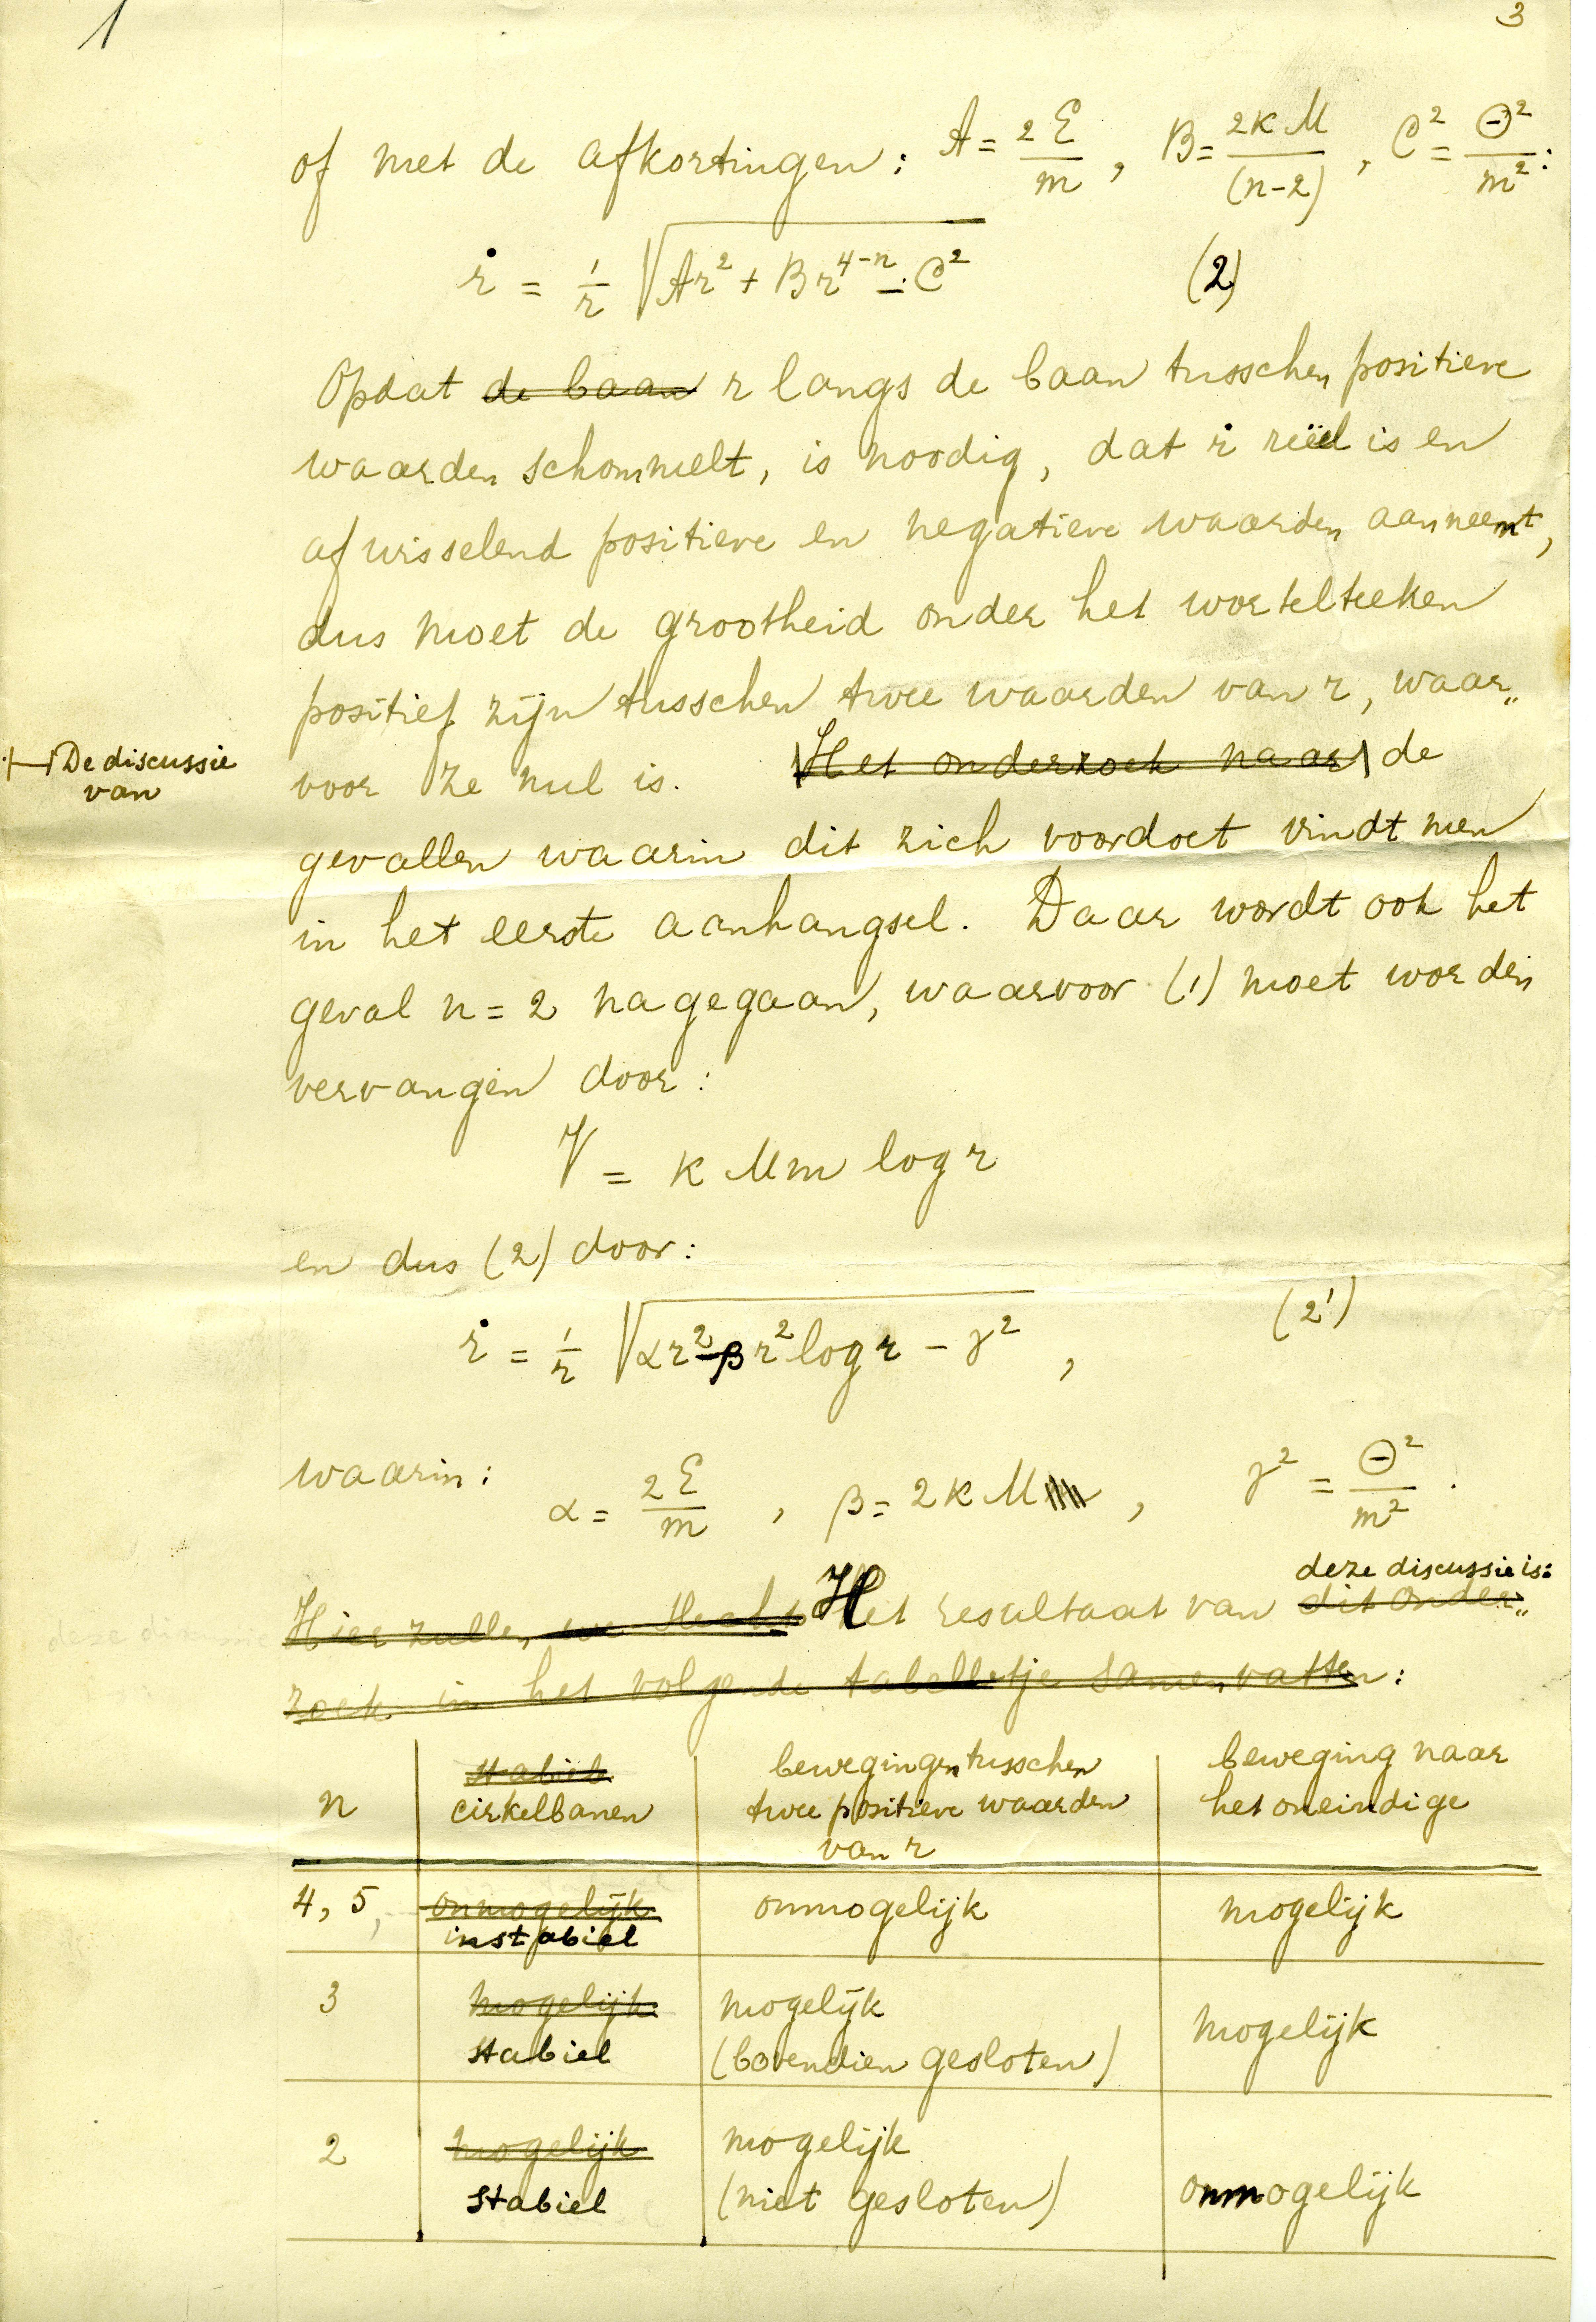 1 3
of met de afkortingen: A = 2E/m, B = 2κM/(n-2), C² = Θ²/m²:
ṙ = 1/r √(Ar² + Br⁴⁻ⁿ - C²) (2)
Opdat de baan r langs de baan tusschen positieve
waarden schommelt, is noodig, dat ṙ reëel is en
afwisselend positieve en negatieve waarden aanneemt,
dus moet de grootheid onder het wortelteeken
positief zijn tusschen twee waarden van r, waar„
voor ze nul is. Het onderzoek naar de
De discussie
van
gevallen waarin dit zich voordoet vindt men
in het eerste aanhangsel. Daar wordt ook het
geval n = 2 nagegaan, waarvoor (1) moet worden
vervangen door:
V = κ M m log r
en dus (2) door:
ṙ = 1/r √(αr² - βr² log r - γ²), (2')
waarin: α = 2E/m, β = 2κM, γ² = Θ²/m².
deze discussie is:
Hier zullen we slechts Het resultaat van dit onder„
zoek in het volgende tabelletje samenvatten:
n stabiele cirkelbanen bewegingen tusschen twee positieve waarden van r beweging naar het oneindige
4, 5, onmogelijk instabiel onmogelijk mogelijk
3 mogelijk stabiel mogelijk (bovendien gesloten) mogelijk
2 mogelijk stabiel mogelijk (niet gesloten) onmogelijk